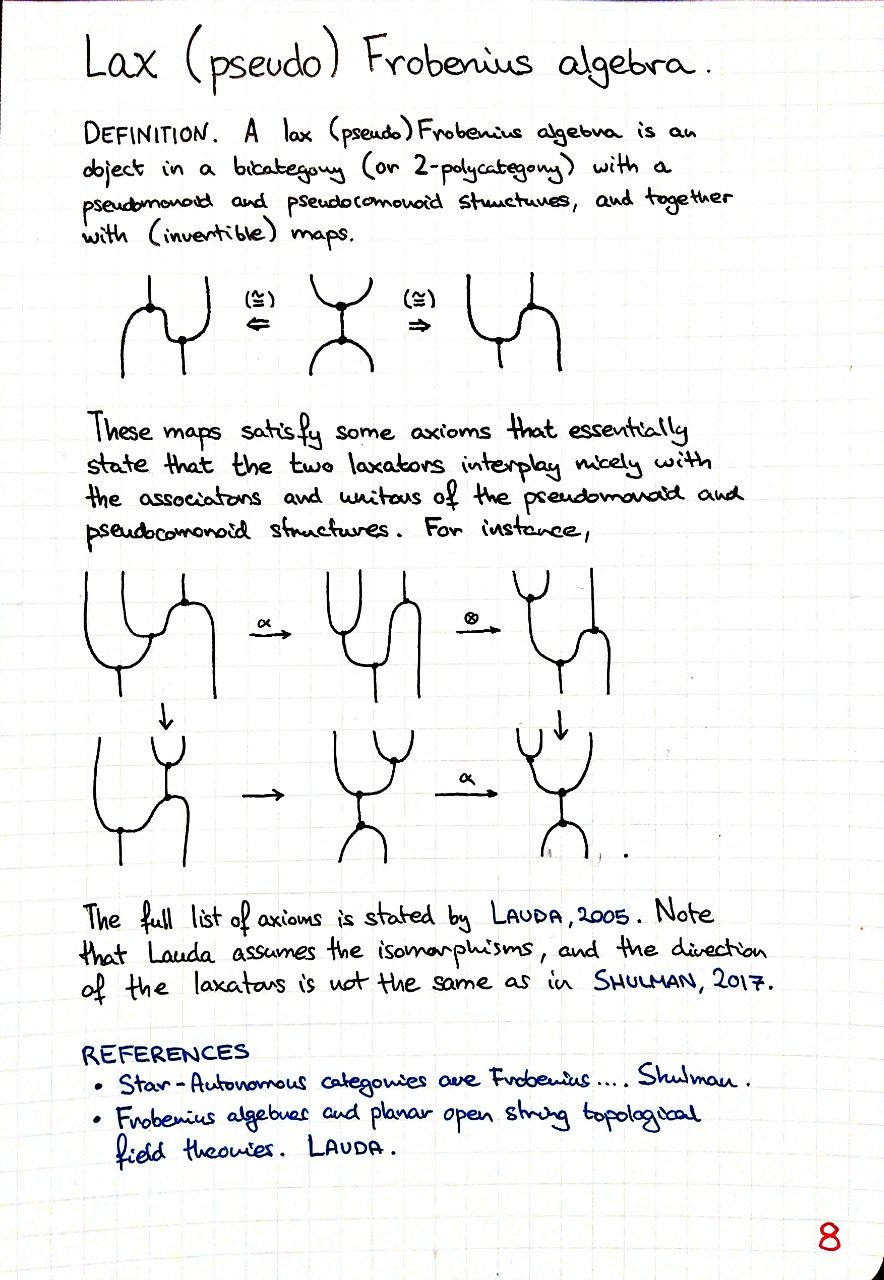 Lax (pseudo) Frobenius algebra.
DEFINITION. A lax (pseudo) Frobenius algebra is an
object in a bicategory (or 2-polycategory) with a
pseudomonoid and pseudocomonoid structures, and together
with (invertible) maps.
(≅) (≅)
⇐ ⇒
These maps satisfy some axioms that essentially
state that the two laxators interplay nicely with
the associators and unitors of the pseudomonoid and
pseudocomonoid structures. For instance,
α ⊗
→ →
↓ ↓
α
→ →
.
The full list of axioms is stated by LAUDA, 2005. Note
that Lauda assumes the isomorphisms, and the direction
of the laxators is not the same as in SHULMAN, 2017.
REFERENCES
• Star-Autonomous categories are Frobenius.... Shulman.
• Frobenius algebras and planar open string topological
field theories. LAUDA.
8